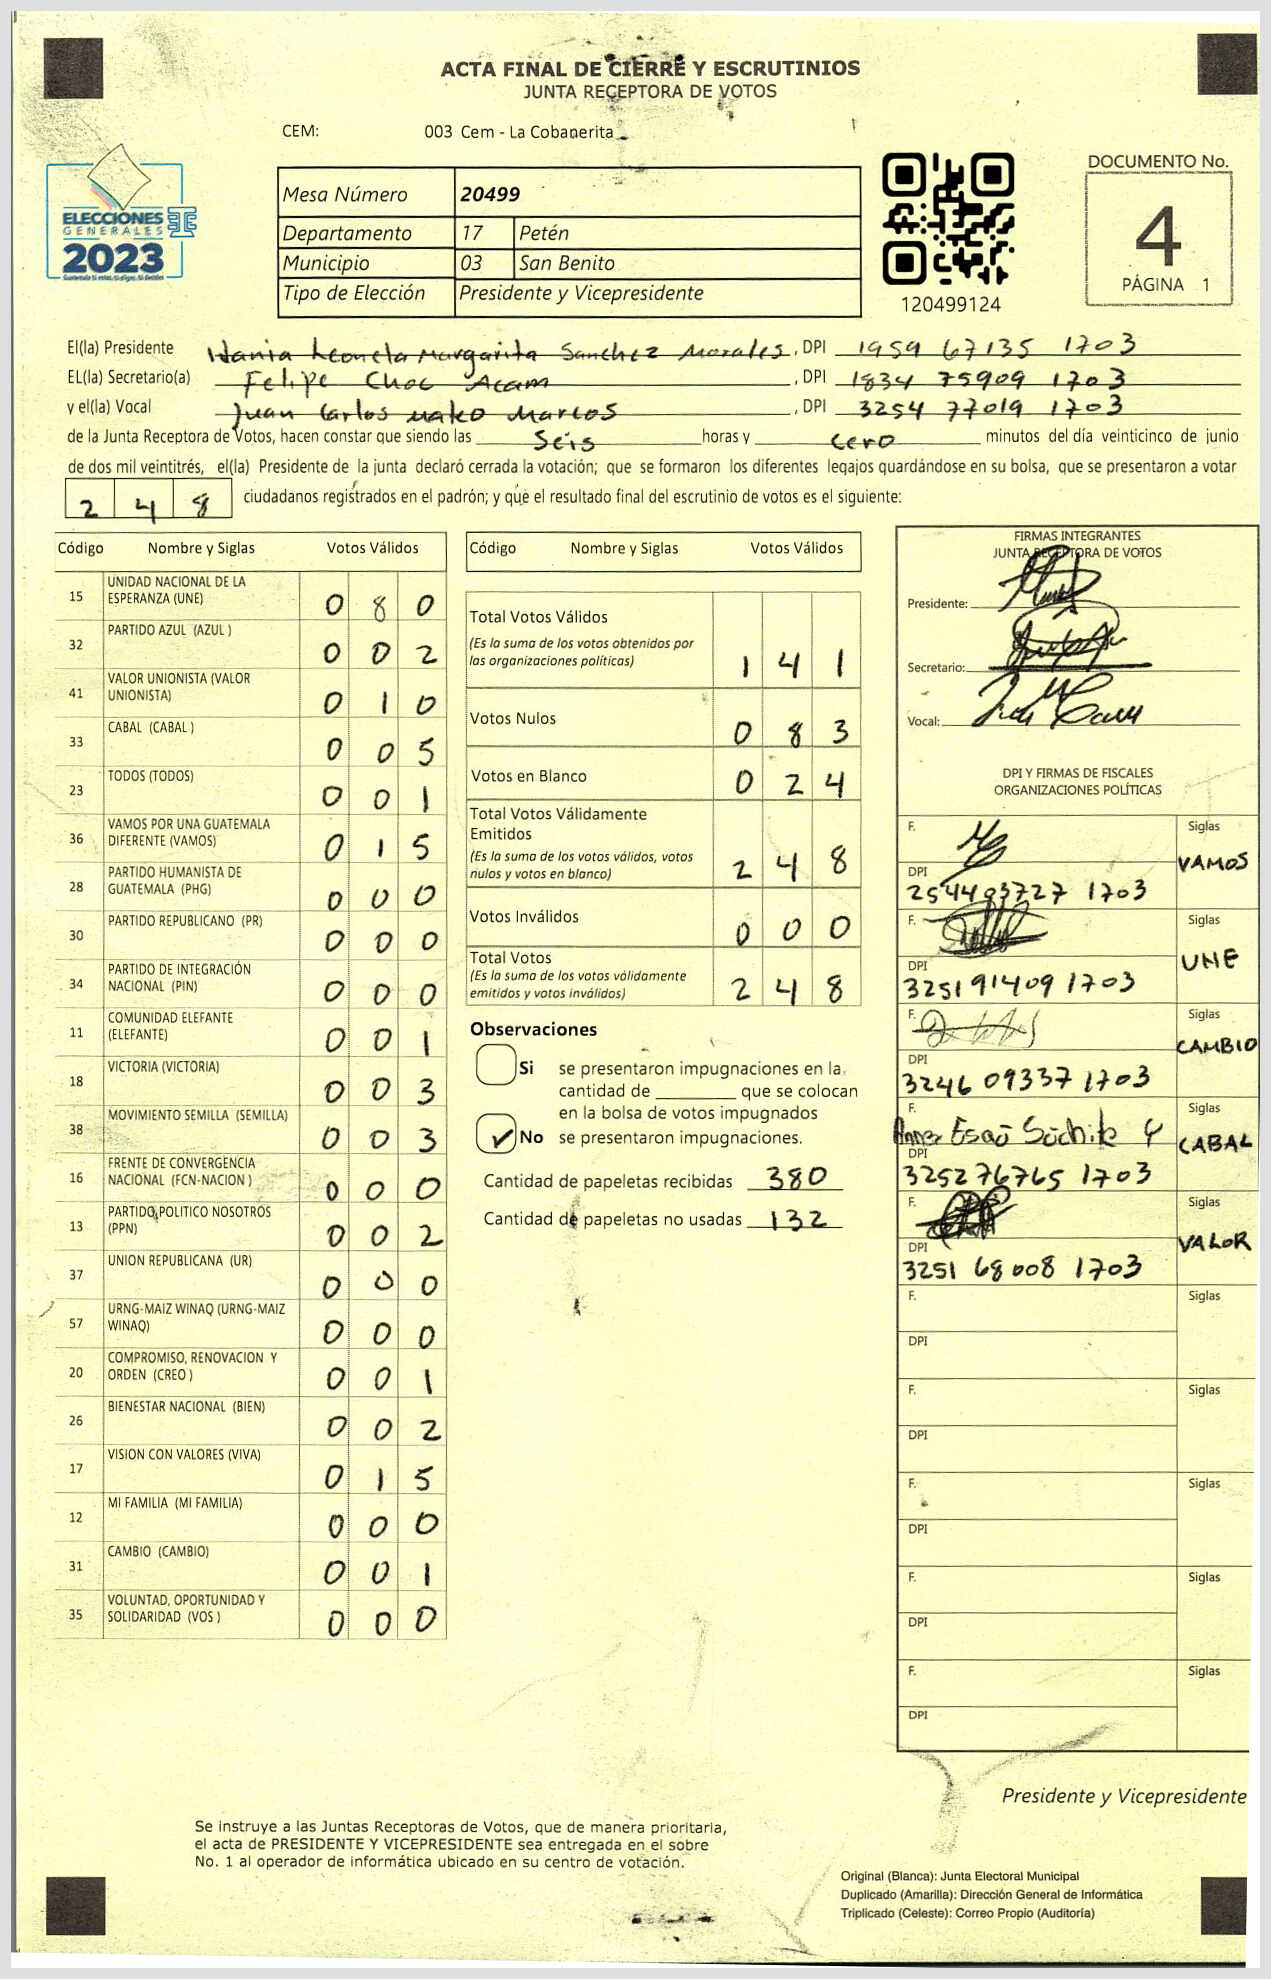 ACTA FINAL DE CIERRE Y ESCRUTINIOS
JUNTA RECEPTORA DE VOTOS
CEM: 003 Cem - La Cobanerita
ELECCIONES
GENERALES
2023
Mesa Número 20499
Departamento 17 Petén
Municipio 03 San Benito
Tipo de Elección Presidente y Vicepresidente
120499124
DOCUMENTO No.
4
PÁGINA 1
El(la) Presidente Margarita Sanchez Morales, DPI 1959 67135 1703
EL(la) Secretario(a) Felipe Choc Acam, DPI 1834 75909 1703
y el(la) Vocal Juan Carlos Marcos, DPI 3254 77019 1703
de la Junta Receptora de Votos, hacen constar que siendo las Seis horas y cero minutos del día veinticinco de junio
de dos mil veintitrés, el(la) Presidente de la junta declaró cerrada la votación; que se formaron los diferentes legajos quardándose en su bolsa, que se presentaron a votar
248 ciudadanos registrados en el padrón; y que el resultado final del escrutinio de votos es el siguiente:
Código Nombre y Siglas Votos Válidos
15 UNIDAD NACIONAL DE LA ESPERANZA (UNE) 0 8 0
32 PARTIDO AZUL (AZUL ) 0 0 2
41 VALOR UNIONISTA (VALOR UNIONISTA) 0 1 0
33 CABAL (CABAL ) 0 0 5
23 TODOS (TODOS) 0 0 1
36 VAMOS POR UNA GUATEMALA DIFERENTE (VAMOS) 0 1 5
28 PARTIDO HUMANISTA DE GUATEMALA (PHG) 0 0 0
30 PARTIDO REPUBLICANO (PR) 0 0 0
34 PARTIDO DE INTEGRACIÓN NACIONAL (PIN) 0 0 0
11 COMUNIDAD ELEFANTE (ELEFANTE) 0 0 1
18 VICTORIA (VICTORIA) 0 0 3
38 MOVIMIENTO SEMILLA (SEMILLA) 0 0 3
16 FRENTE DE CONVERGENCIA NACIONAL (FCN-NACION ) 0 0 0
13 PARTIDO POLITICO NOSOTROS (PPN) 0 0 2
37 UNION REPUBLICANA (UR) 0 0 0
57 URNG-MAIZ WINAQ (URNG-MAIZ WINAQ) 0 0 0
20 COMPROMISO, RENOVACION Y ORDEN (CREO ) 0 0 1
26 BIENESTAR NACIONAL (BIEN) 0 0 2
17 VISION CON VALORES (VIVA) 0 1 5
12 MI FAMILIA (MI FAMILIA) 0 0 0
31 CAMBIO (CAMBIO) 0 0 1
35 VOLUNTAD, OPORTUNIDAD Y SOLIDARIDAD (VOS ) 0 0 0
Código Nombre y Siglas Votos Válidos
Total Votos Válidos
(Es la suma de los votos obtenidos por
las organizaciones políticas) 1 4 1
Votos Nulos 0 8 3
Votos en Blanco 0 2 4
Total Votos Válidamente
Emitidos
(Es la suma de los votos válidos, votos
nulos y votos en blanco) 2 4 8
Votos Inválidos 0 0 0
Total Votos
(Es la suma de los votos válidamente
emitidos y votos inválidos) 2 4 8
Observaciones
Si se presentaron impugnaciones en la
cantidad de ________ que se colocan
en la bolsa de votos impugnados
No se presentaron impugnaciones.
Cantidad de papeletas recibidas 380
Cantidad de papeletas no usadas 132
FIRMAS INTEGRANTES
JUNTA RECEPTORA DE VOTOS
Presidente:
Secretario:
Vocal:
DPI Y FIRMAS DE FISCALES
ORGANIZACIONES POLÍTICAS
F. Siglas
VAMOS
DPI
254403727 1703
F. Siglas
UNE
DPI
3251 91409 1703
F. Siglas
CAMBIO
DPI
3246 09337 1703
F. Siglas
CABAL
DPI
3252 76765 1703
F. Siglas
VALOR
DPI
3251 68008 1703
F. Siglas
DPI
F. Siglas
DPI
F. Siglas
DPI
F. Siglas
DPI
F. Siglas
DPI
Presidente y Vicepresidente
Se instruye a las Juntas Receptoras de Votos, que de manera prioritaria,
el acta de PRESIDENTE Y VICEPRESIDENTE sea entregada en el sobre
No. 1 al operador de informática ubicado en su centro de votación.
Original (Blanca): Junta Electoral Municipal
Duplicado (Amarilla): Dirección General de Informática
Triplicado (Celeste): Correo Propio (Auditoría)